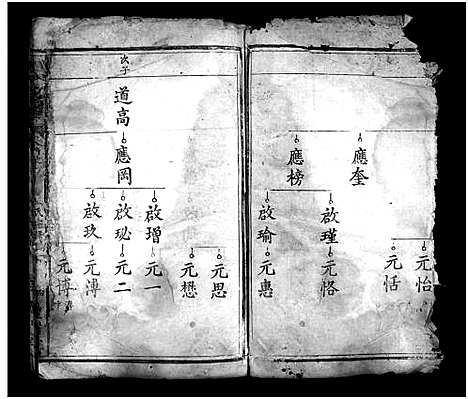 應奎
元怡
元恬
應榜
啟瑾
元恪
啟瑜
元惠
次子
道高
應岡
元思
元懋
啟增
元一
啟珌
元二
啟玖
元溥
元博